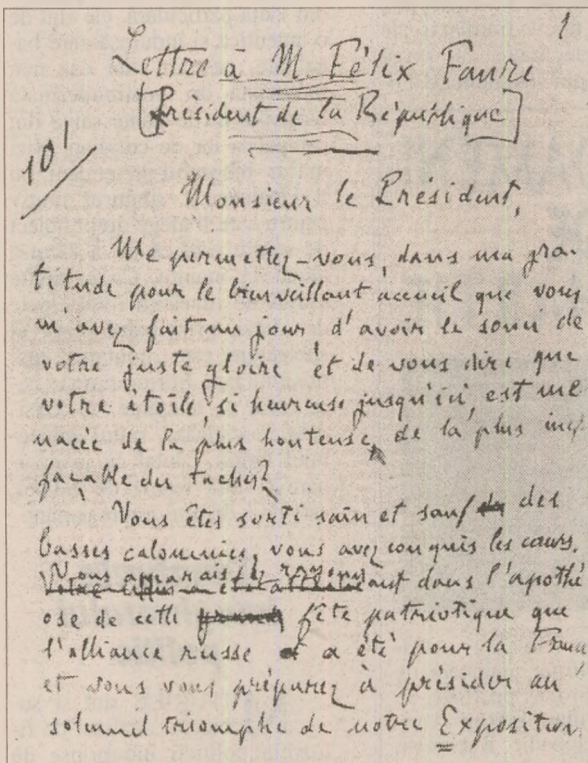 1
Lettre à M. Félix Faure
[Président de la République]
10'
Monsieur le Président,
Me permettez-vous, dans ma gra-
titude pour le bienveillant accueil que vous
m'avez fait un jour, d'avoir le souci de
votre juste gloire et de vous dire que
votre étoile, si heureuse jusqu'ici, est me
nacée de la plus honteuse, de la plus inef
façable des taches?
Vous êtes sorti sain et sauf des
basses calomnies, vous avez conquis les cœurs.
Vous apparaissez rayonnant dans l'apothé
ose de cette fête patriotique que
l'alliance russe a été pour la France
et vous vous préparez à présider au
solennel triomphe de notre Exposition